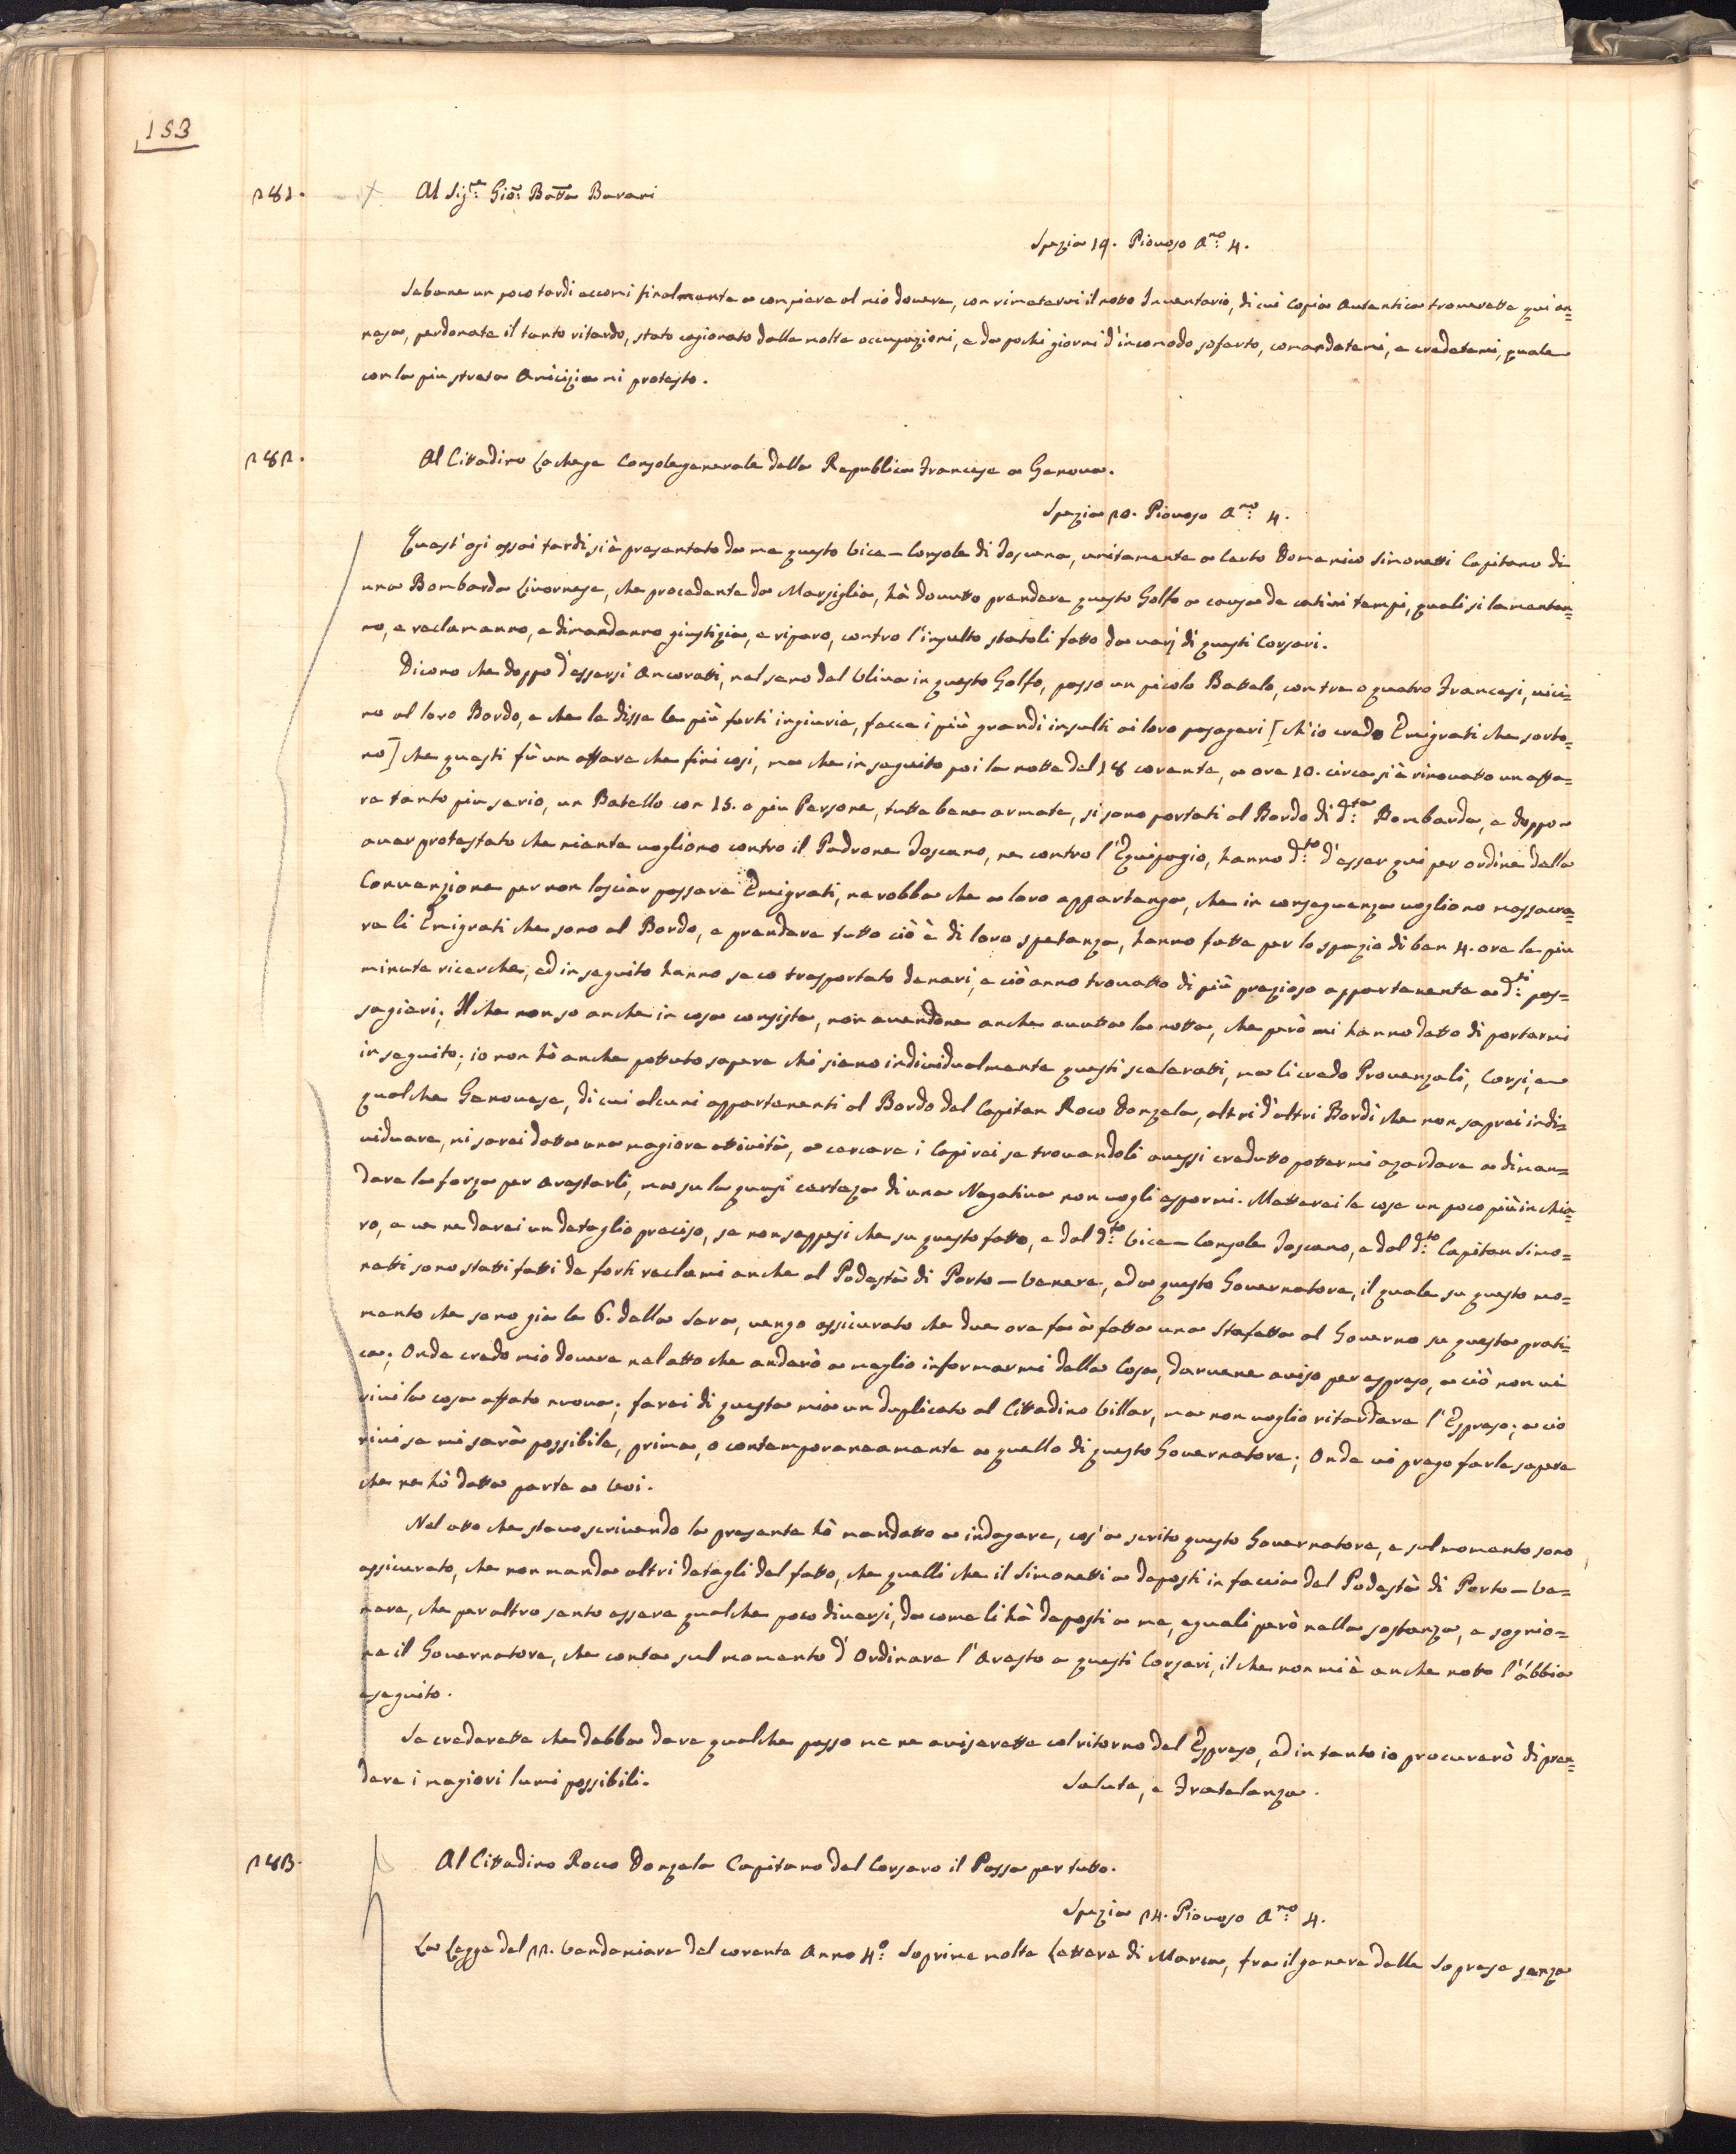 153
281. Al Sig:re Gio: Batta Bavari
Spezia 19. Piovoso A:no 4.
Sebene un poco tardi eccomi finalmente a compiere al mio dovere, con rimetervi il notto Inventario, di cui Copia Autentica troverette qui an=
nesa, perdonate il tanto ritardo, stato cagionato dalle molte occupazioni, e da pochi giorni d'incomodo soferto, comandatemi, e credetemi, quale
con la piu streta Amicizia mi protesto.
282. Al Cittadino Lachege Console generale della Republica Francese a Genova.
Spezia 20. Piovoso A:no 4.
Quest'ogi assai tardi si è presentato da me questo Vice-Console di Toscana, unitamente a certo Domenico Simonetti Capitano di
una Bombarda Livornese, che procedente da Marsiglia, hà dovutto prendere questo Golfo a causa de cativi tempi, quali si lamentan=
no, e reclamanno, e dimandanno giustizia, e riparo, contro l'insulto statoli fatto da varj di questi Corsari.
Dicono che doppo d'essersi Ancoratti, nel seno del Uliva in questo Golfo, passo un picolo Battelo, con tre o quatro Francesi, vici=
no al loro Bordo, e che le disse le più forti ingiurie, fecce i più grandi insulti ai loro pasageri [ch'io credo Emigrati che sorto=
no] che questi fù un affare che finì cosi, ma che in seguito poi la notte del 18 corente, a ore 10. circa si è rinovatto un affa=
re tanto piu serio, un Batello con 15. e piu Persone, tutte bene armate, si sono portati al Bordo di d:ta Bombarda, e doppo
aver protestato che niente vogliono contro il Padrone Toscano, ne contro l'Equipagio, hanno d:to d'esser qui per ordine della
Convenzione per non lasciar passare Emigrati, ne robba che a loro appartenga, che in conseguenza vogliono massacra=
re li Emigrati che sono al Bordo, e prendere tutto ciò è di loro spetanza, hanno fatte per lo spazio di ben 4. ore le piu
minute ricerche, ed in seguito hanno seco trasportato denari, e ciò anno trovatto di più prezioso appartenente a d:ti pas=
sagieri; Il che non so anche in cosa consista, non avendone anche avutta la notta, che però mi hanno detto di portarmi
in seguito; io non hò anche pottuto sapere chi siano individualmente questi sceleratti, ma li credo Provenzali, Corsi, e
qualche Genovese, di cui alcuni appartenenti al Bordo del Capitan Roco Donzela, altri d'altri Bordi che non saprei indi=
viduare, mi sarei datta una magiore attività, a cercare i Capi rei se trovandoli avessi credutto pottermi azardare a diman=
dare la forza per Arestarli, ma su la quasi certeza di una Negativa non vogli espormi. Metterei le cose un poco più in chia=
ro, e ve ne darei un detaglio preciso, se non seppesi che su questo fatto, e dal d:to Vice-Console Toscano, e dal d:to Capitan Simo=
netti sono statti fatti de forti reclami anche al Podestà di Porto-Venere, ed a questo Governatore, il quale su questo mo=
mento che sono gia le 6. della Sera, vengo assicurato che due ore fa à fatta una Stafetta al Governo su questa prati=
ca; Onde credo mio dovere nel atto che anderò a meglio informarmi della Cosa, darvene aviso per espreso, a ciò non vi
rivi la cosa affato nuova; farei di questa mia un duplicato al Cittadino Villar, ma non voglio ritardare l'Espreso; a cio
rivi se mi sarà possibile, prima, o contemporaneamente a quello di questo Governatore; Onde vi prego farle sapere
che ne hò datta parte a Voi.
Nel atto che stavo scrivendo la presente hò mandatto a indagare, cos'a scrito questo Governatore, e sul momento sono
assicurato, che non manda altri detagli del fatto, che quelli che il Simonetti a deposti in faccia del Podestà di Porto-Ve=
nere, che per altro sento essere qualche poco diversi, da come li hà deposti a me, eguali però nella sostanza, e sognio=
ne il Governatore, che conta sul momento d'Ordinare l'Aresto a questi Corsari, il che non mi è anche notto l'abbia
eseguito.
Se crederette che debba dare qualche passo me ne aviserette col ritorno del Espreso, ed in tanto io procurerò di pren=
dere i magiori lumi possibili. Salute, e Fratelanza.
283. Al Cittadino Rocco Donzela Capitano del Corsaro il Passa per tutto.
Spezia 24. Piovoso A:no 4.
La Legge del 22. Vendemiare del corente Anno 4:o Soprime molte Lettere di Marca, fra il genere delle Soprese senza